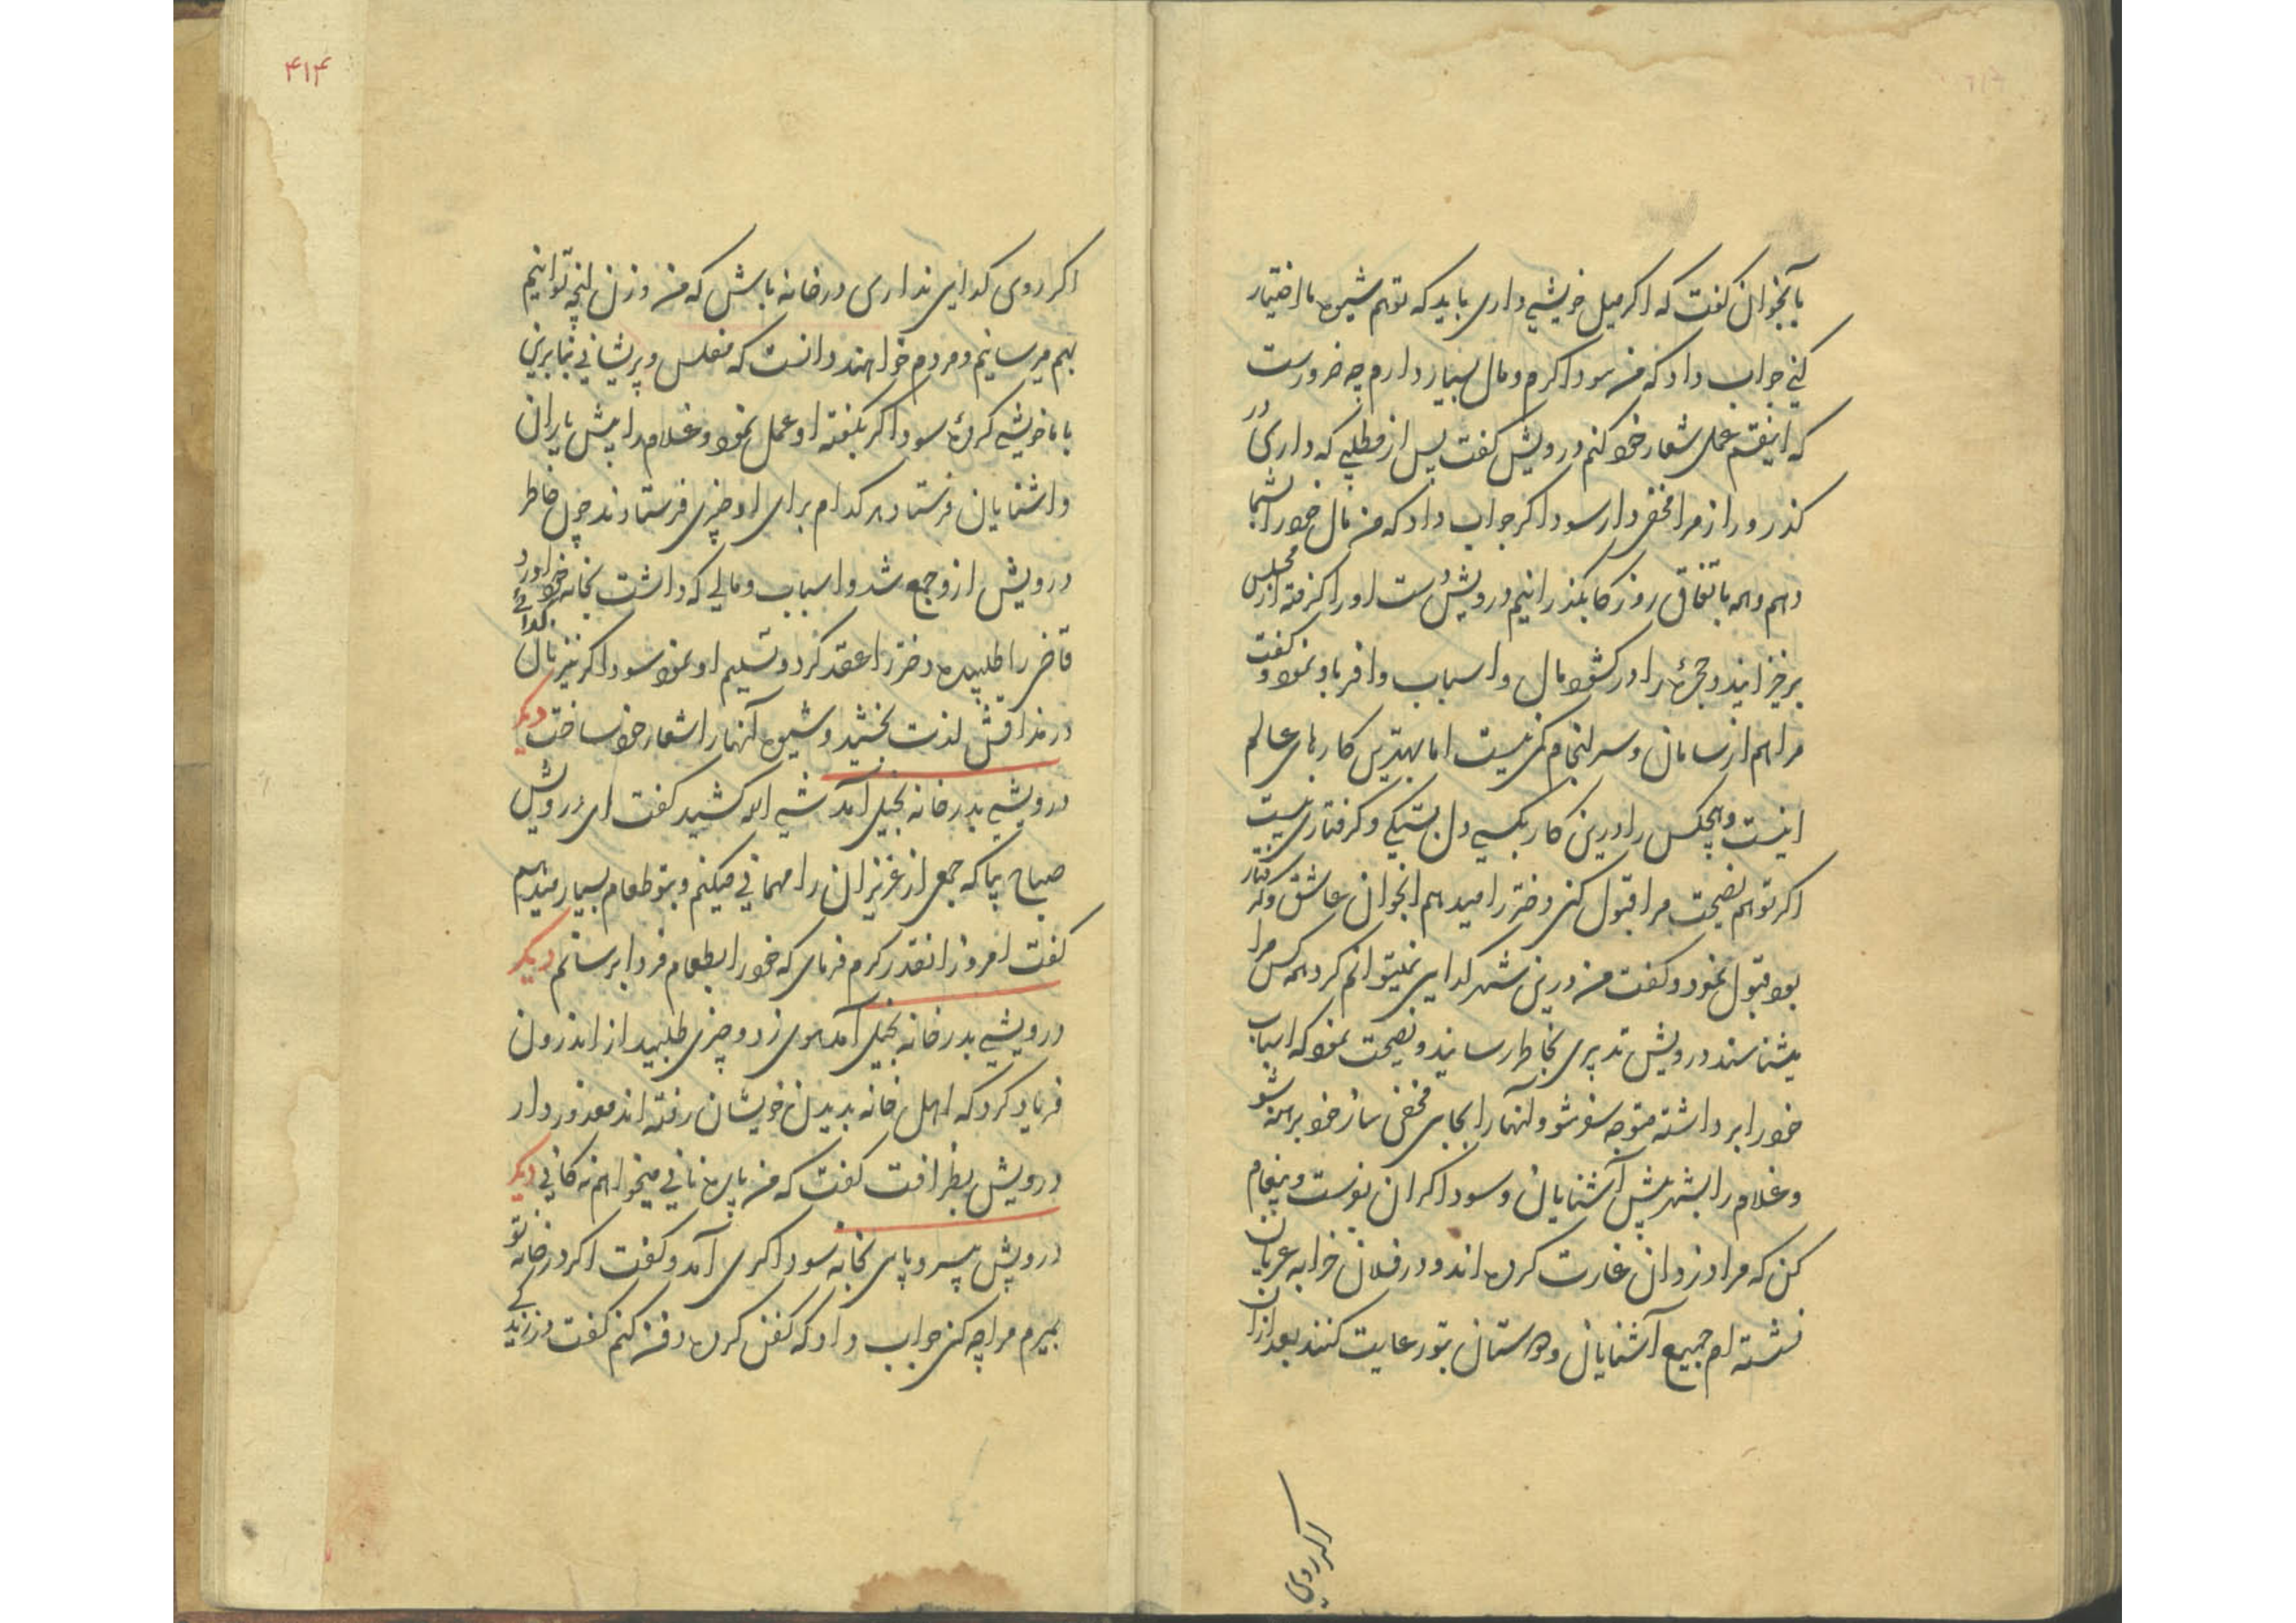 بآنجوان گفت که اگر میل خویشی داری باید که تو هم شیوه ما اختیار
کنی جواب داد که من سوداگرم و مال بسیار دارم چه ضرورست
که اینقسم عمل شعار خود کنم درویش گفت پس از مطلبی که داری در
گذر و راز مرا مخفی دار سوداگر جواب داد که من مال خود را بشما
دهم و همه باتفاق روزگار بگذرانیم درویش دست او را گرفته از مجلس
برخیزانید و حجره را در گشود مال و اسباب وافر باو نمود و گفت
مرا هم از سامان و سرانجام کمی نیست اما بهترین کارهای عالم
اینست و هیچکس را درین کار بکسی دل بستگی و گرفتاری نیست
اگر تو هم نصیحت مرا قبول کنی دختر را میدهم آنجوان عاشق و گرفتار
بود قبول نمود و گفت من درین شهر گدایی نمیتوانم کرد همه کس مرا
میشناسند درویش تدبیری بخاطر رسانید و نصیحت نمود که اسباب
خود را برداشته متوجه سفر شو و آنها را بجای مخفی ساز خود برهنه شو
و غلام را بشهر پیش آشنایان و سوداگران بفرست و پیغام
کن که مرا دزدان غارت کرده اند و در فلان خرابه عریان
نشسته ام جمیع آشنایان و دوستان بتو رعایت کنند بعد ازان
اگر روی
۴۱۴
اگر روی گدایی نداری در خانه باش که من و زن آنچه توانیم
بهم میرسانیم و مردم خواهند دانست که مفلس و پریشانی بنابرین
با ما خویشی کرده سوداگر بگفته او عمل نمود و غلام را پیش یاران
و آشنایان فرستاد هر کدام برای او چیزی فرستادند چون خاطر
درویش ازو جمع شد و اسباب و مالی که داشت بخانه خود آورد
قاضی را طلبیده دختر را عقد کرد و تسلیم او نمود سوداگر نیز نان گدائی
در مذاقش لذت بخشید و شیوه آنها را شعار خود ساخت دیگر
درویشی بدر خانه بخیلی آمد شی الله کشید گفت ای درویش
صباح بیا که جمعی از عزیزان را مهمانی میکنم و بتو طعام بسیار میدهم
گفت امروز انقدر کرم فرمای که خود را بطعام فردا برسانم دیگر
درویشی بدر خانه بخیلی آمد هوی زد و چیزی طلبید از اندرون
فریاد کرد که اهل خانه بدیدن خویشان رفته اند معذور دار
درویش بظرافت گفت که من پاره نانی میخواهم نه گانی دیگر
درویش بی سر و پای بخانه سوداگری آمد و گفت اگر در خانه تو
بمیرم مرا چه کنی جواب داد که کفن کرده دفن کنم گفت در زندگی